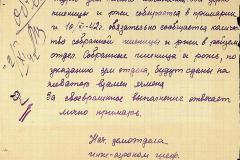 пшеницы и рожи собирается в примарии
и 10/XI-42. обязательно сообщается количество
собранной пшеницы и рожи в районный
отдел. Собранные пшеница и рожь, по
указанию зем отдела, будут сданы на
элеватор взамен ячменя.
2) За своевременное выполнение отвечает
лично примарь.
Нач. земотдела
инж-агроном